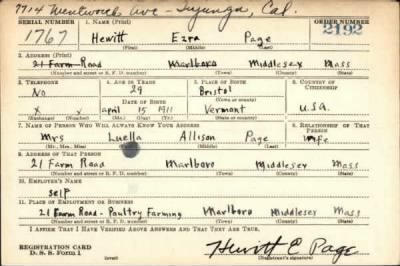 7714 Wentworth Ave - Tujunga Cal.
SERIAL NUMBER 1. NAME (Print) ORDER NUMBER
1767 Hewitt Ezra Page 2192
(First) (Middle) (Last)
2. ADDRESS (Print)
21 Farm Road Marlboro Middlesex Mass
(Number and street or R. F. D. number) (Town) (County) (State)
3. TELEPHONE 4. AGE IN YEARS 5. PLACE OF BIRTH 6. COUNTRY OF CITIZENSHIP
No 29 Bristol
DATE OF BIRTH (Town or county)
x x April 15 1911 Vermont U.S.A.
(Exchange) (Number) (Mo.) (Day) (Yr.) (State or country)
7. NAME OF PERSON WHO WILL ALWAYS KNOW YOUR ADDRESS 8. RELATIONSHIP OF THAT PERSON
Mrs Luella Allison Page Wife
(Mr., Mrs., Miss) (First) (Middle) (Last)
9. ADDRESS OF THAT PERSON
21 Farm Road Marlboro Middlesex Mass
(Number and street or R. F. D. number) (Town) (County) (State)
10. EMPLOYER'S NAME
self
11. PLACE OF EMPLOYMENT OR BUSINESS
21 Farm Road - Poultry Farming Marlboro Middlesex Mass
(Number and street or R. F. D. number) (Town) (County) (State)
I AFFIRM THAT I HAVE VERIFIED ABOVE ANSWERS AND THAT THEY ARE TRUE.
REGISTRATION CARD
D. S. S. Form 1 (over) Hewitt E Page